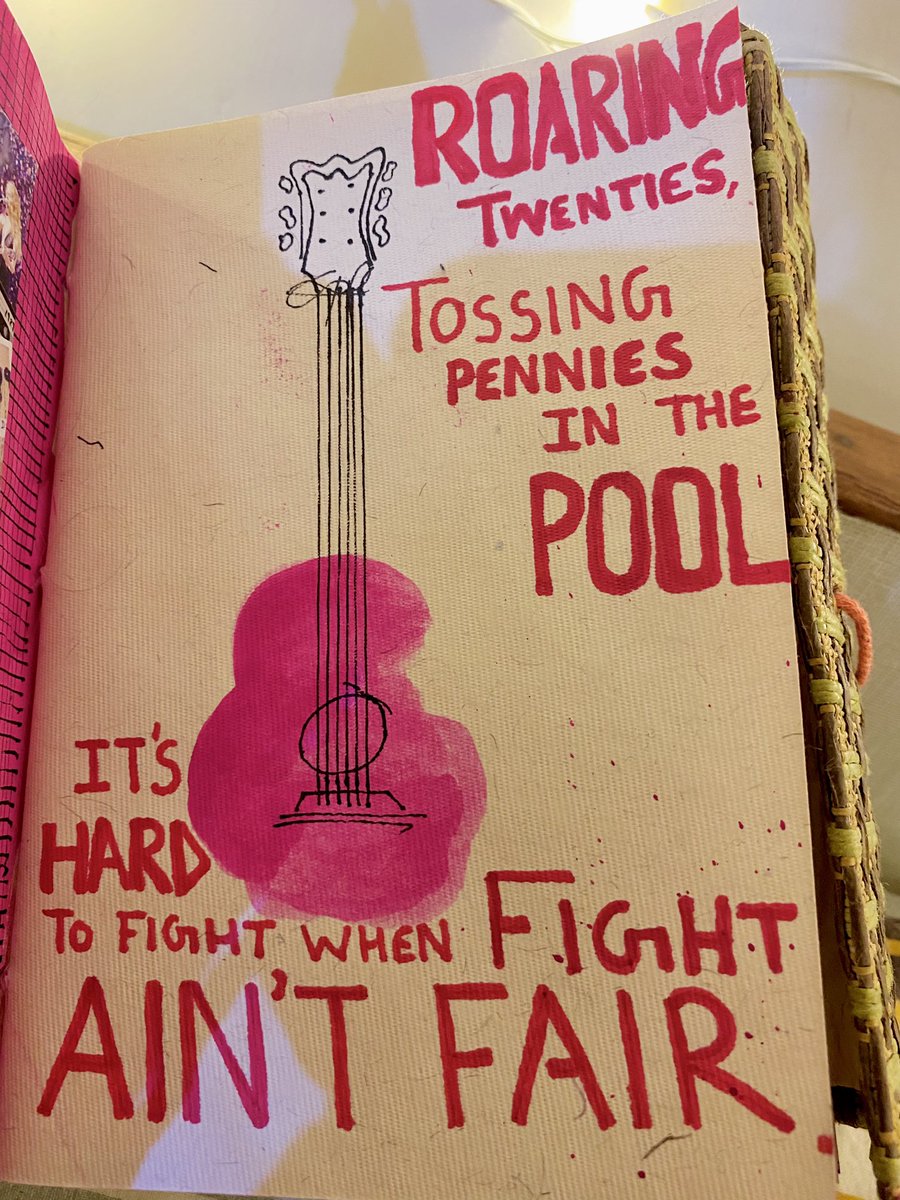 ROARING
TWENTIES,
TOSSING
PENNIES
IN THE
POOL
IT'S
HARD
TO FIGHT WHEN FIGHT
AIN'T FAIR.